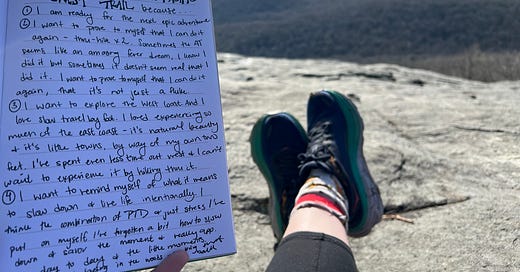 TRAIL because...
① I am ready for the next epic adventure
② I want to prove to myself that I can do it
again - thru-hike x2. Sometimes the AT
seems like an amazing fever dream. I know I
did it but sometimes it doesn't seem real that I
did it. I want to prove to myself that I can do it
again, that it's not just a fluke.
③ I want to explore the West Coast and I
love slow travel by foot. I loved experiencing so
much of the east coast - it's natural beauty
& it's little towns, by way of my own two
feet. I've spent even less time out west & I can't
wait to experience it by hiking thru it.
④ I want to remind myself of what it means
to slow down & live life intentionally. I
think the combination of PTD or just stress I've
put on myself I've forgotten a bit how to slow
down & savor the moment & really app.
day to day & the little moments.
being in the woods